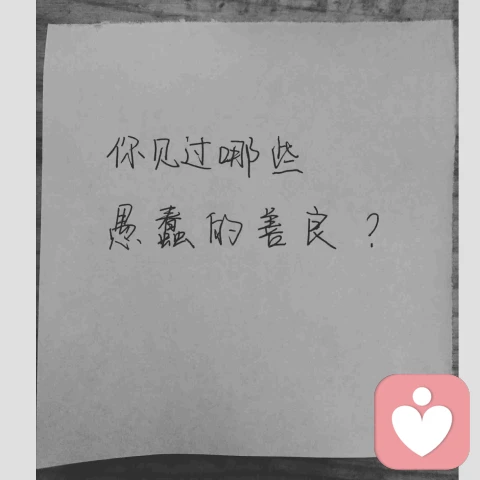 你见过哪些
愚蠢的善良？